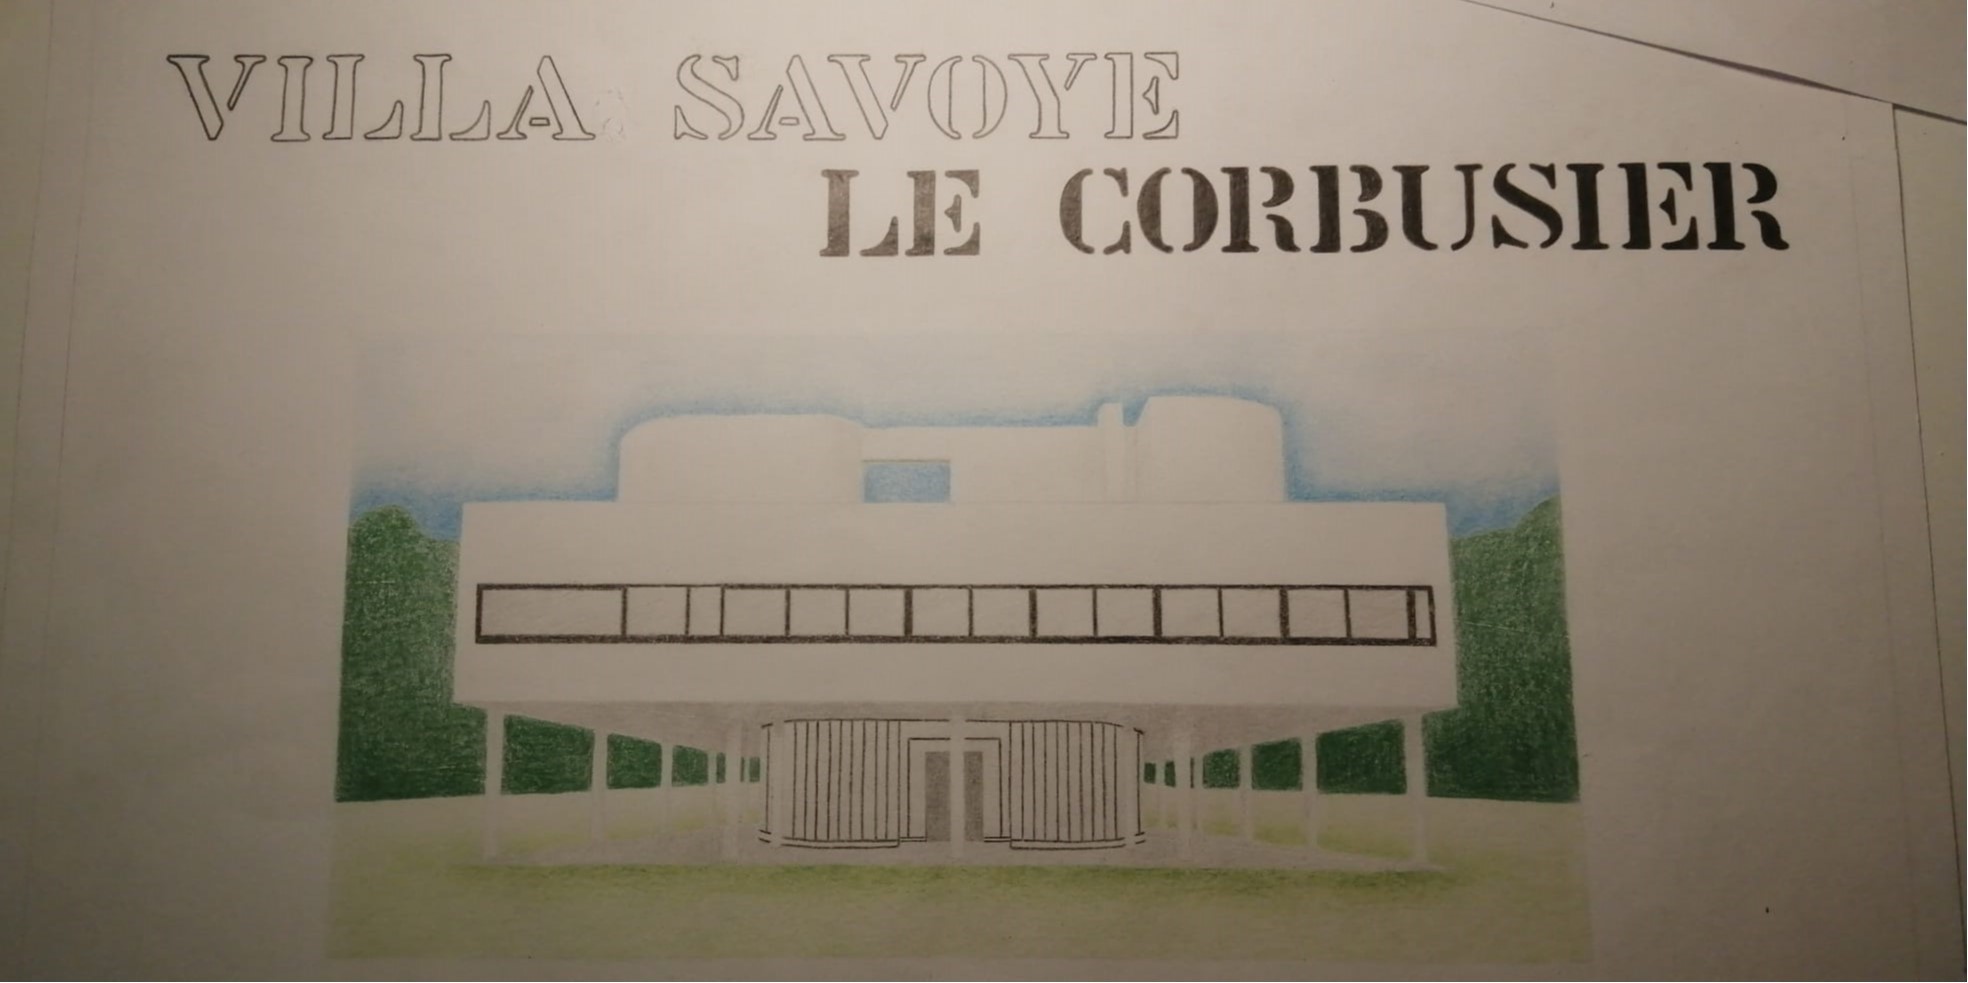 VILLA SAVOYE
LE CORBUSIER